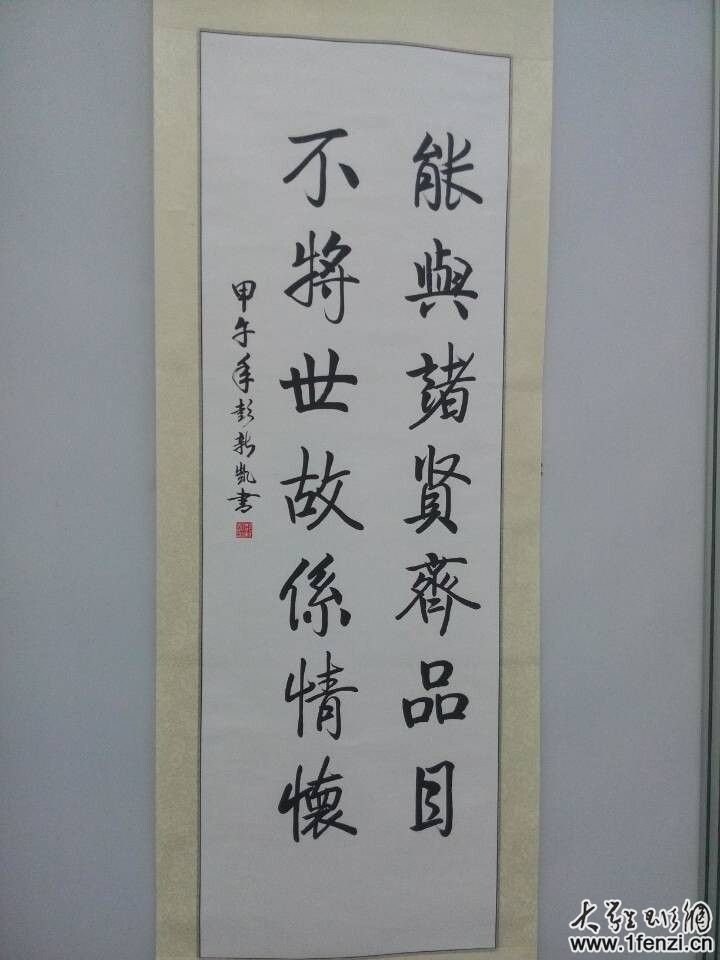 能與諸贤齊品目
不將世故係情懷
甲午年彭新凱書
www.1fenzi.cn